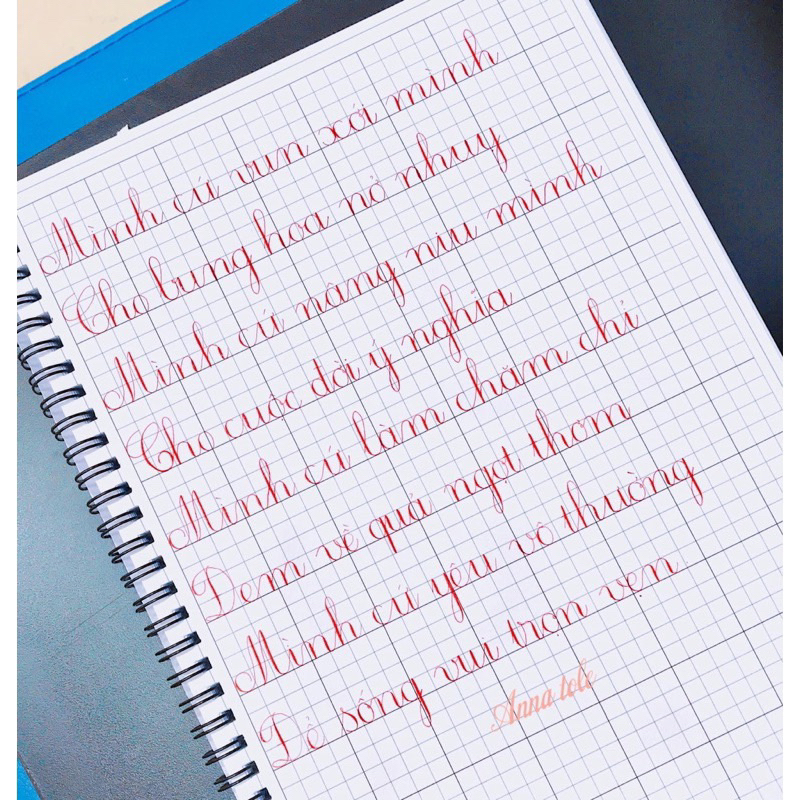 Mình cứ vun xới mình
Cho bung hoa nở nhụy
Mình cứ nâng niu mình
Cho cuộc đời ý nghĩa
Mình cứ làm chăm chỉ
Đem về quả ngọt thơm
Mình cứ yêu vô thường
Để sống vui trọn vẹn
Anna tole